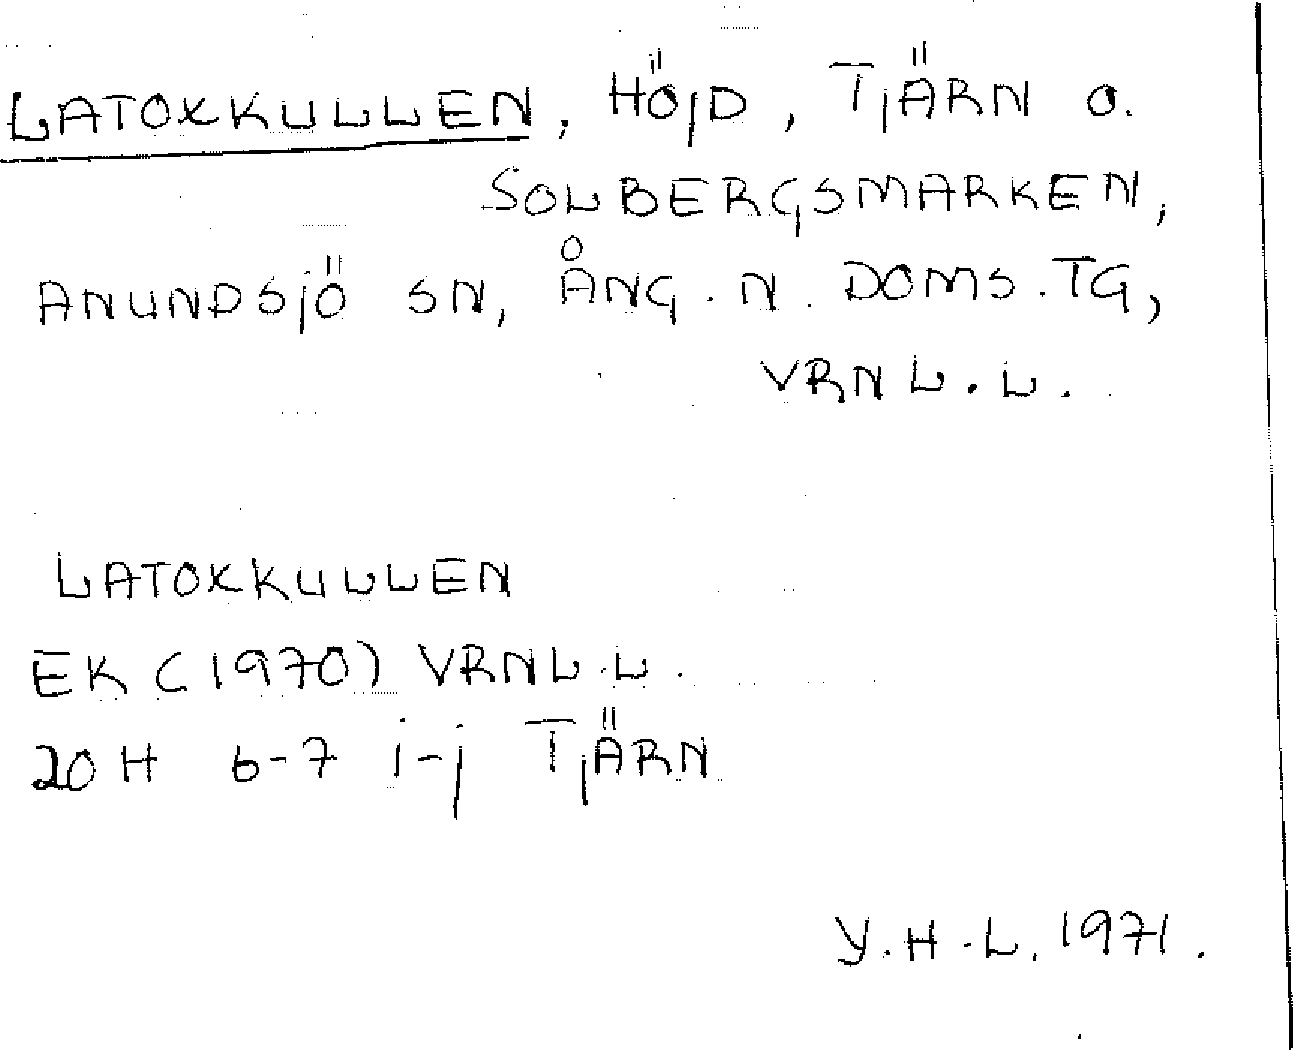 LATOKKULLEN, HÖjD, TjÄRN O.
SOLBERGSMARKEN,
ANUNDSjÖ SN, ÅNG. N. DOMS.TG,
VRNL.L.
LATOKKULLEN
EK (1970) VRNL.L.
20H 6-7 i-j TjÄRN
Y.H-L. 1971.